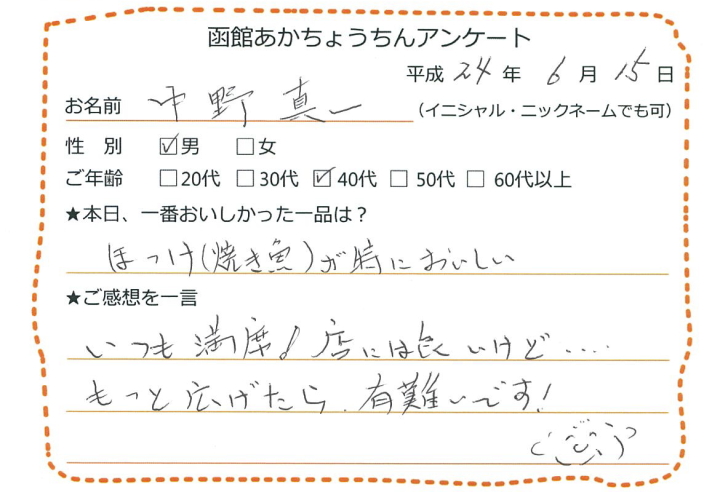 函館あかちょうちんアンケート
平成 24 年 6 月 15 日
お名前 中野 真一 (イニシャル・ニックネームでも可)
性 別 ☑男 □女
ご年齢 □20代 □30代 ☑40代 □ 50代 □ 60代以上
★本日、一番おいしかった一品は？
ほっけ(焼き魚)が特においしい
★ご感想を一言
いつも満席! 店には良いけど....
もっと広げたら、有難いです!